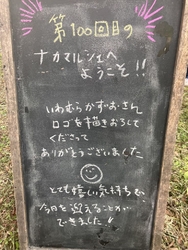 第100回目の
ナカマルシェへ
ようこそ!!
いわむらかずおさん
ロゴを描きおろして
くださって
ありがとうございました
とても嬉しい気持ちで
今日を迎えることが
できました!